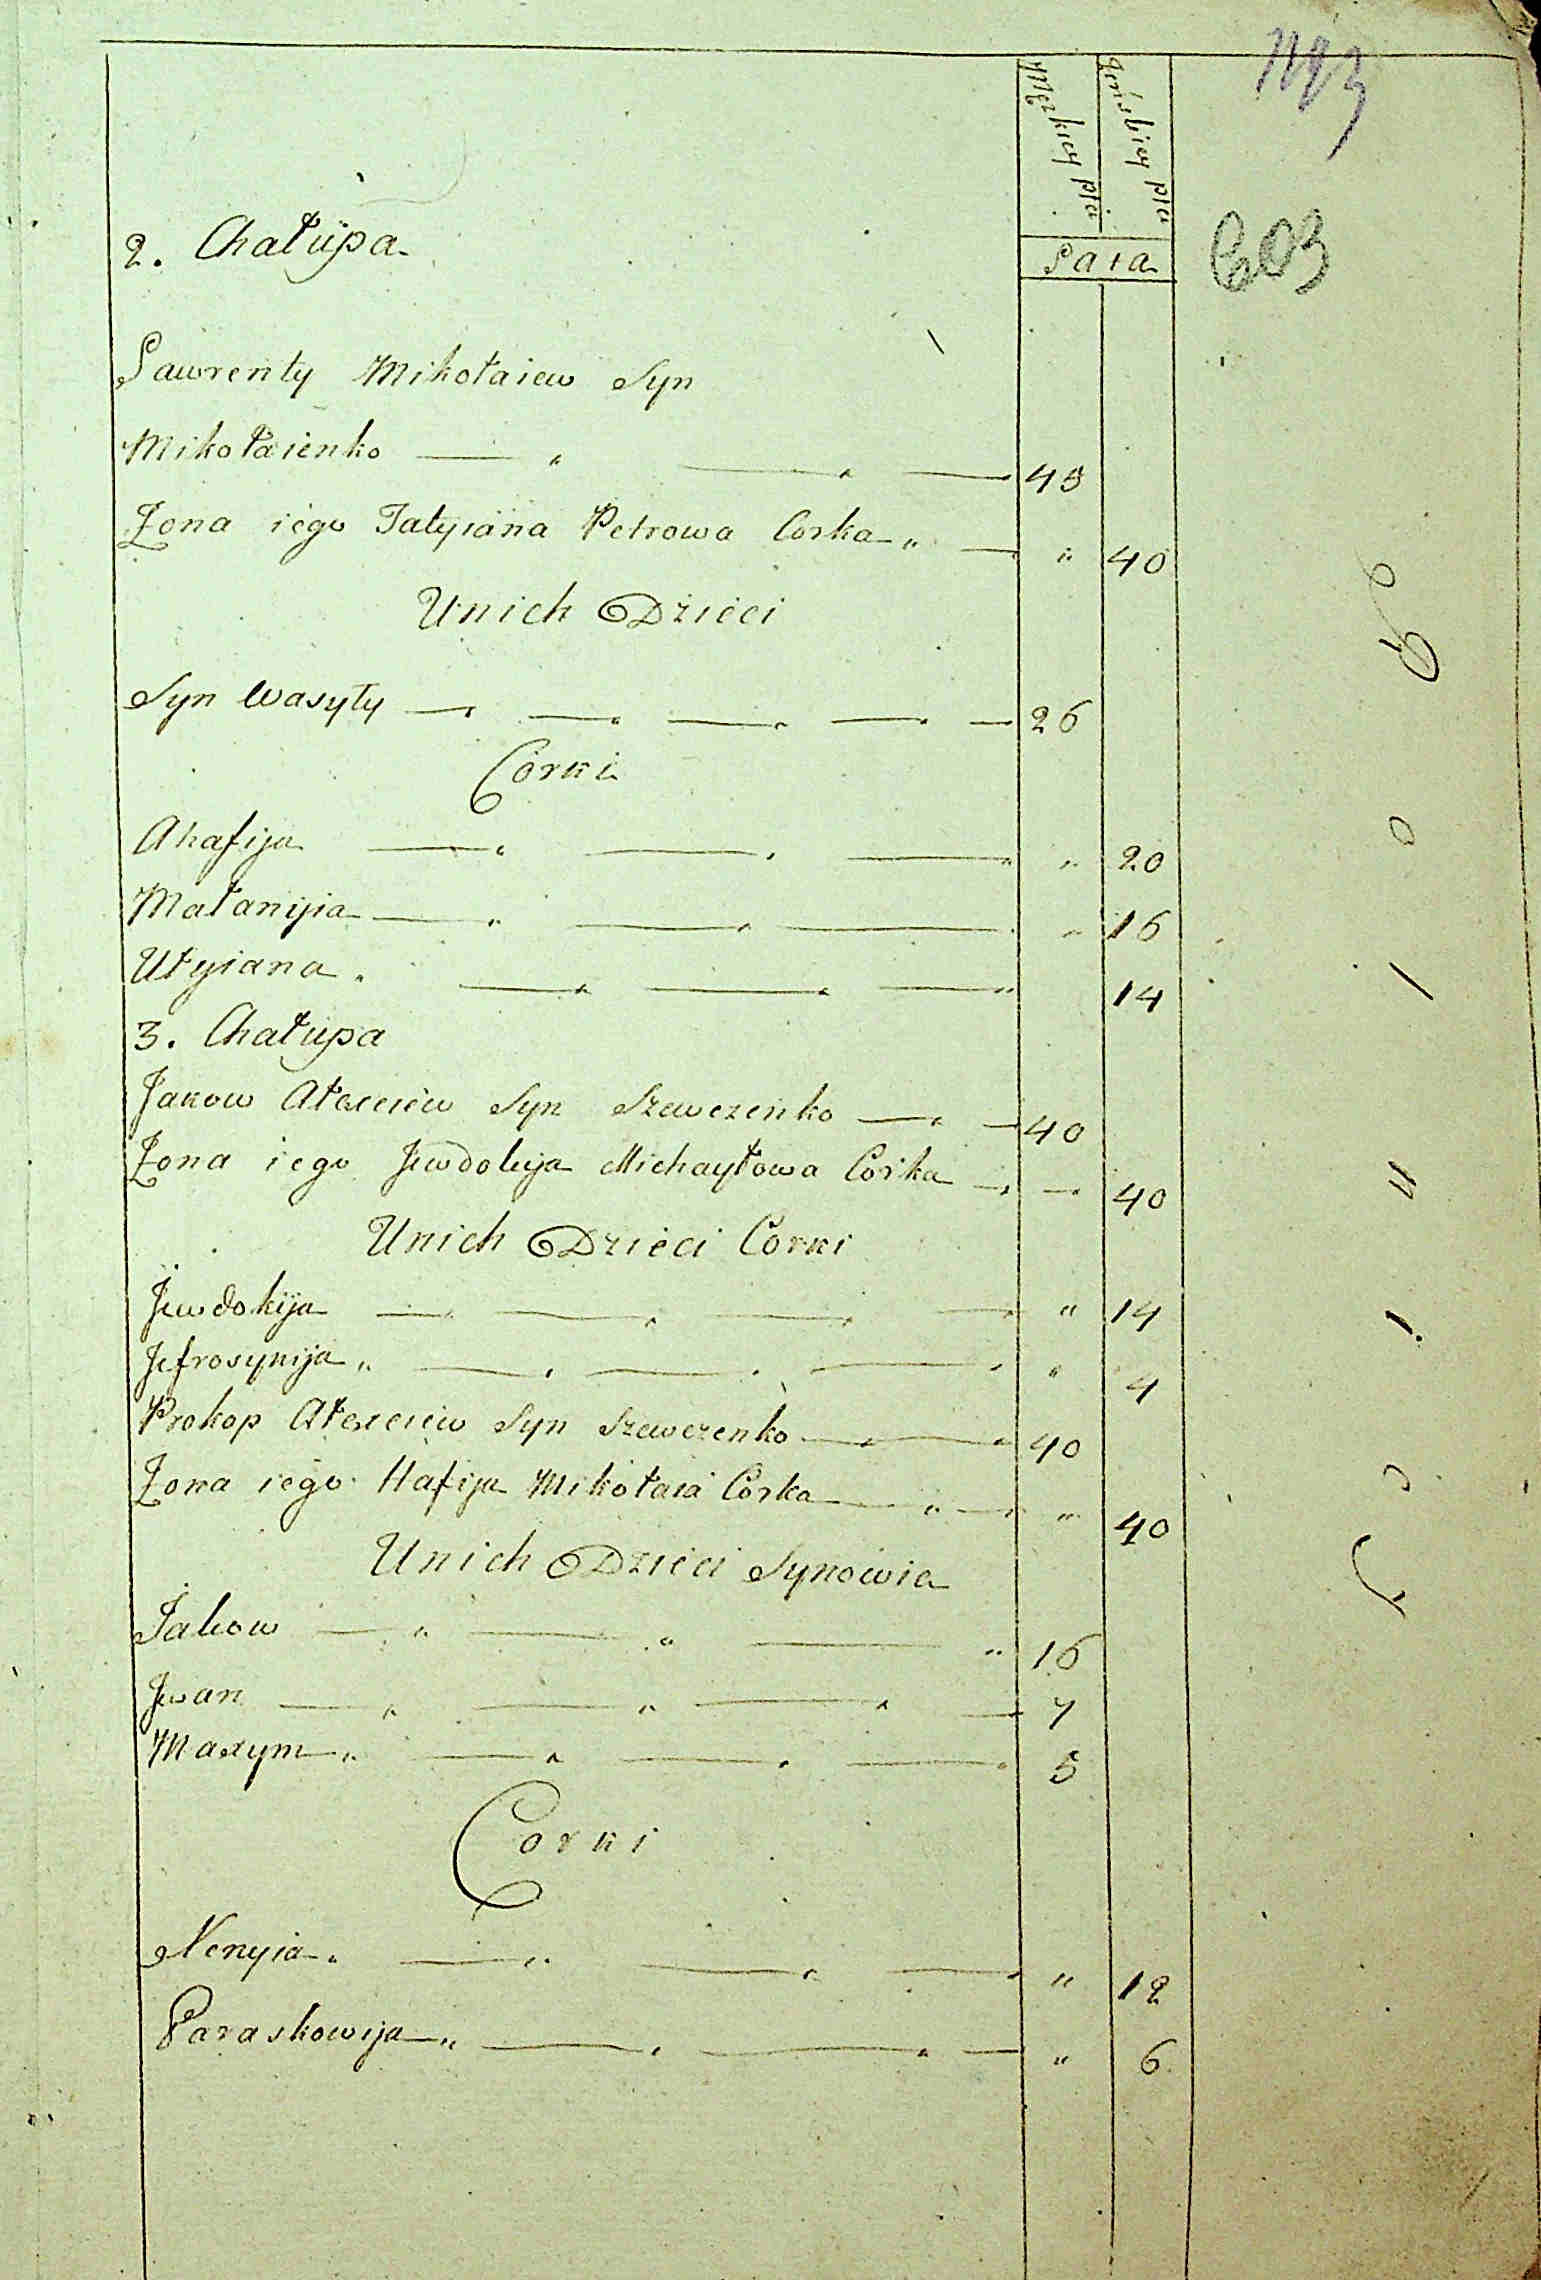 1193
Męzkiey płci
Żeńskiey płci
603
Lata
2. Chałupa
Ławrenty Mikołaiew Syn
Mikołaienko 45
Żona iego Tatyiana Petrowa Corka " 40
Unich Dzieci
Syn Wasyły 26
Corki
Ahafija " 20
Małanyia " 16
Ułyiana 14
3. Chałupa
Jakow Ałexeiew Syn Szewczenko 40
Żona iego Jewdokija Michayłowa Corka 40
Unich Dzieci Corki
Jewdokija " 14
Jefrosynija " 4
Prokop Ałexeiew Syn Szewczenko 40
Żona iego Hafija Mikołaia Corka " 40
Unich Dzieci Synowia
Jakow 16
Jwan 7
Maxym 5
Corki
Xenyia " 12
Paraskowija " 6